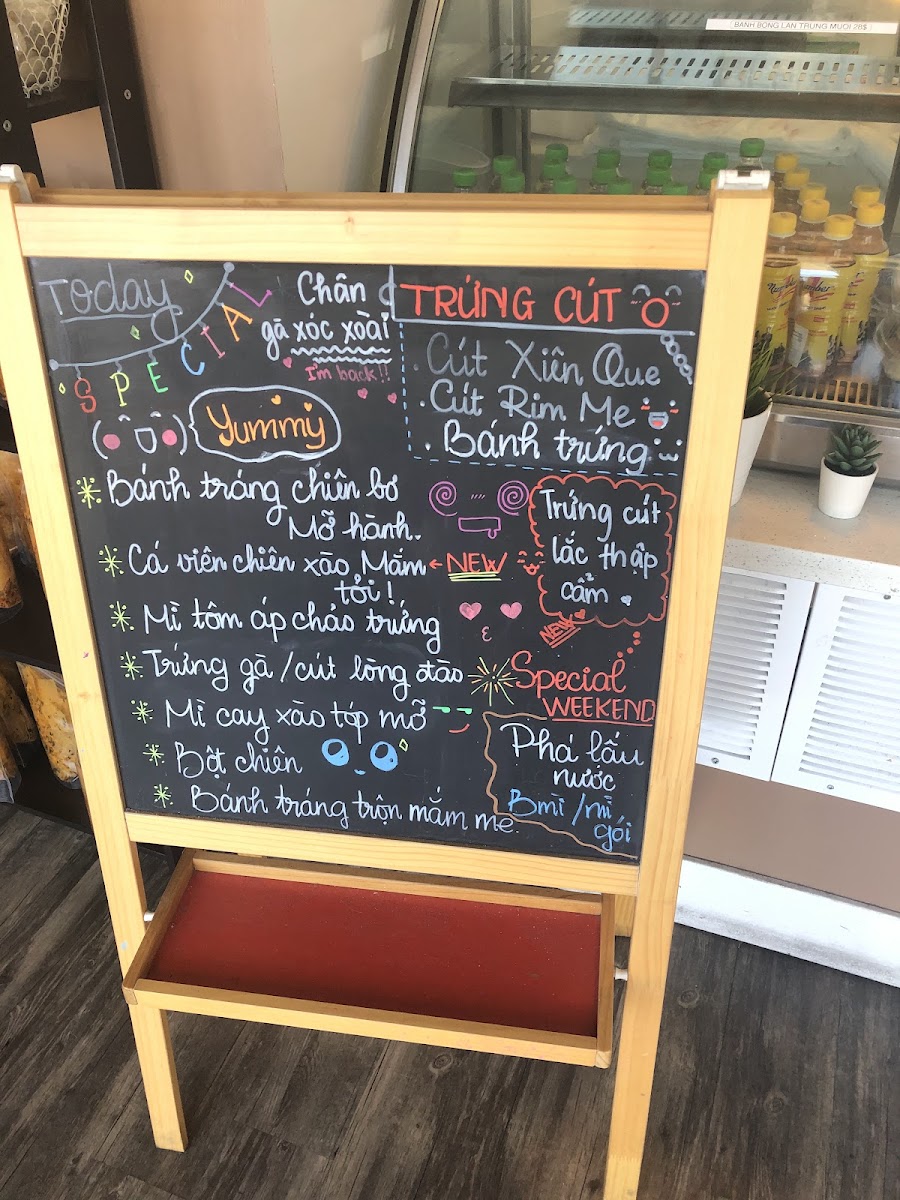 BÁNH BÔNG LAN TRỨNG MUỐI 28$
Today
SPECIAL
Chân
gà xóc xoài
I'm back!!
Yummy
TRỨNG CÚT
Cút Xiên Que
Cút Rim Me
Bánh trứng
Bánh tráng chiên bơ
Mỡ hành.
Cá viên chiên xào Mắm
tỏi!
NEW
Trứng cút
lắc thập
cẩm
NEW
Mì tôm áp chảo trứng
Trứng gà / cút lòng đào
Mì cay xào tóp mỡ
Bột chiên
Bánh tráng trộn mắm me
Special
WEEKEND
Phá lấu
nước
Bmì / mì
gói